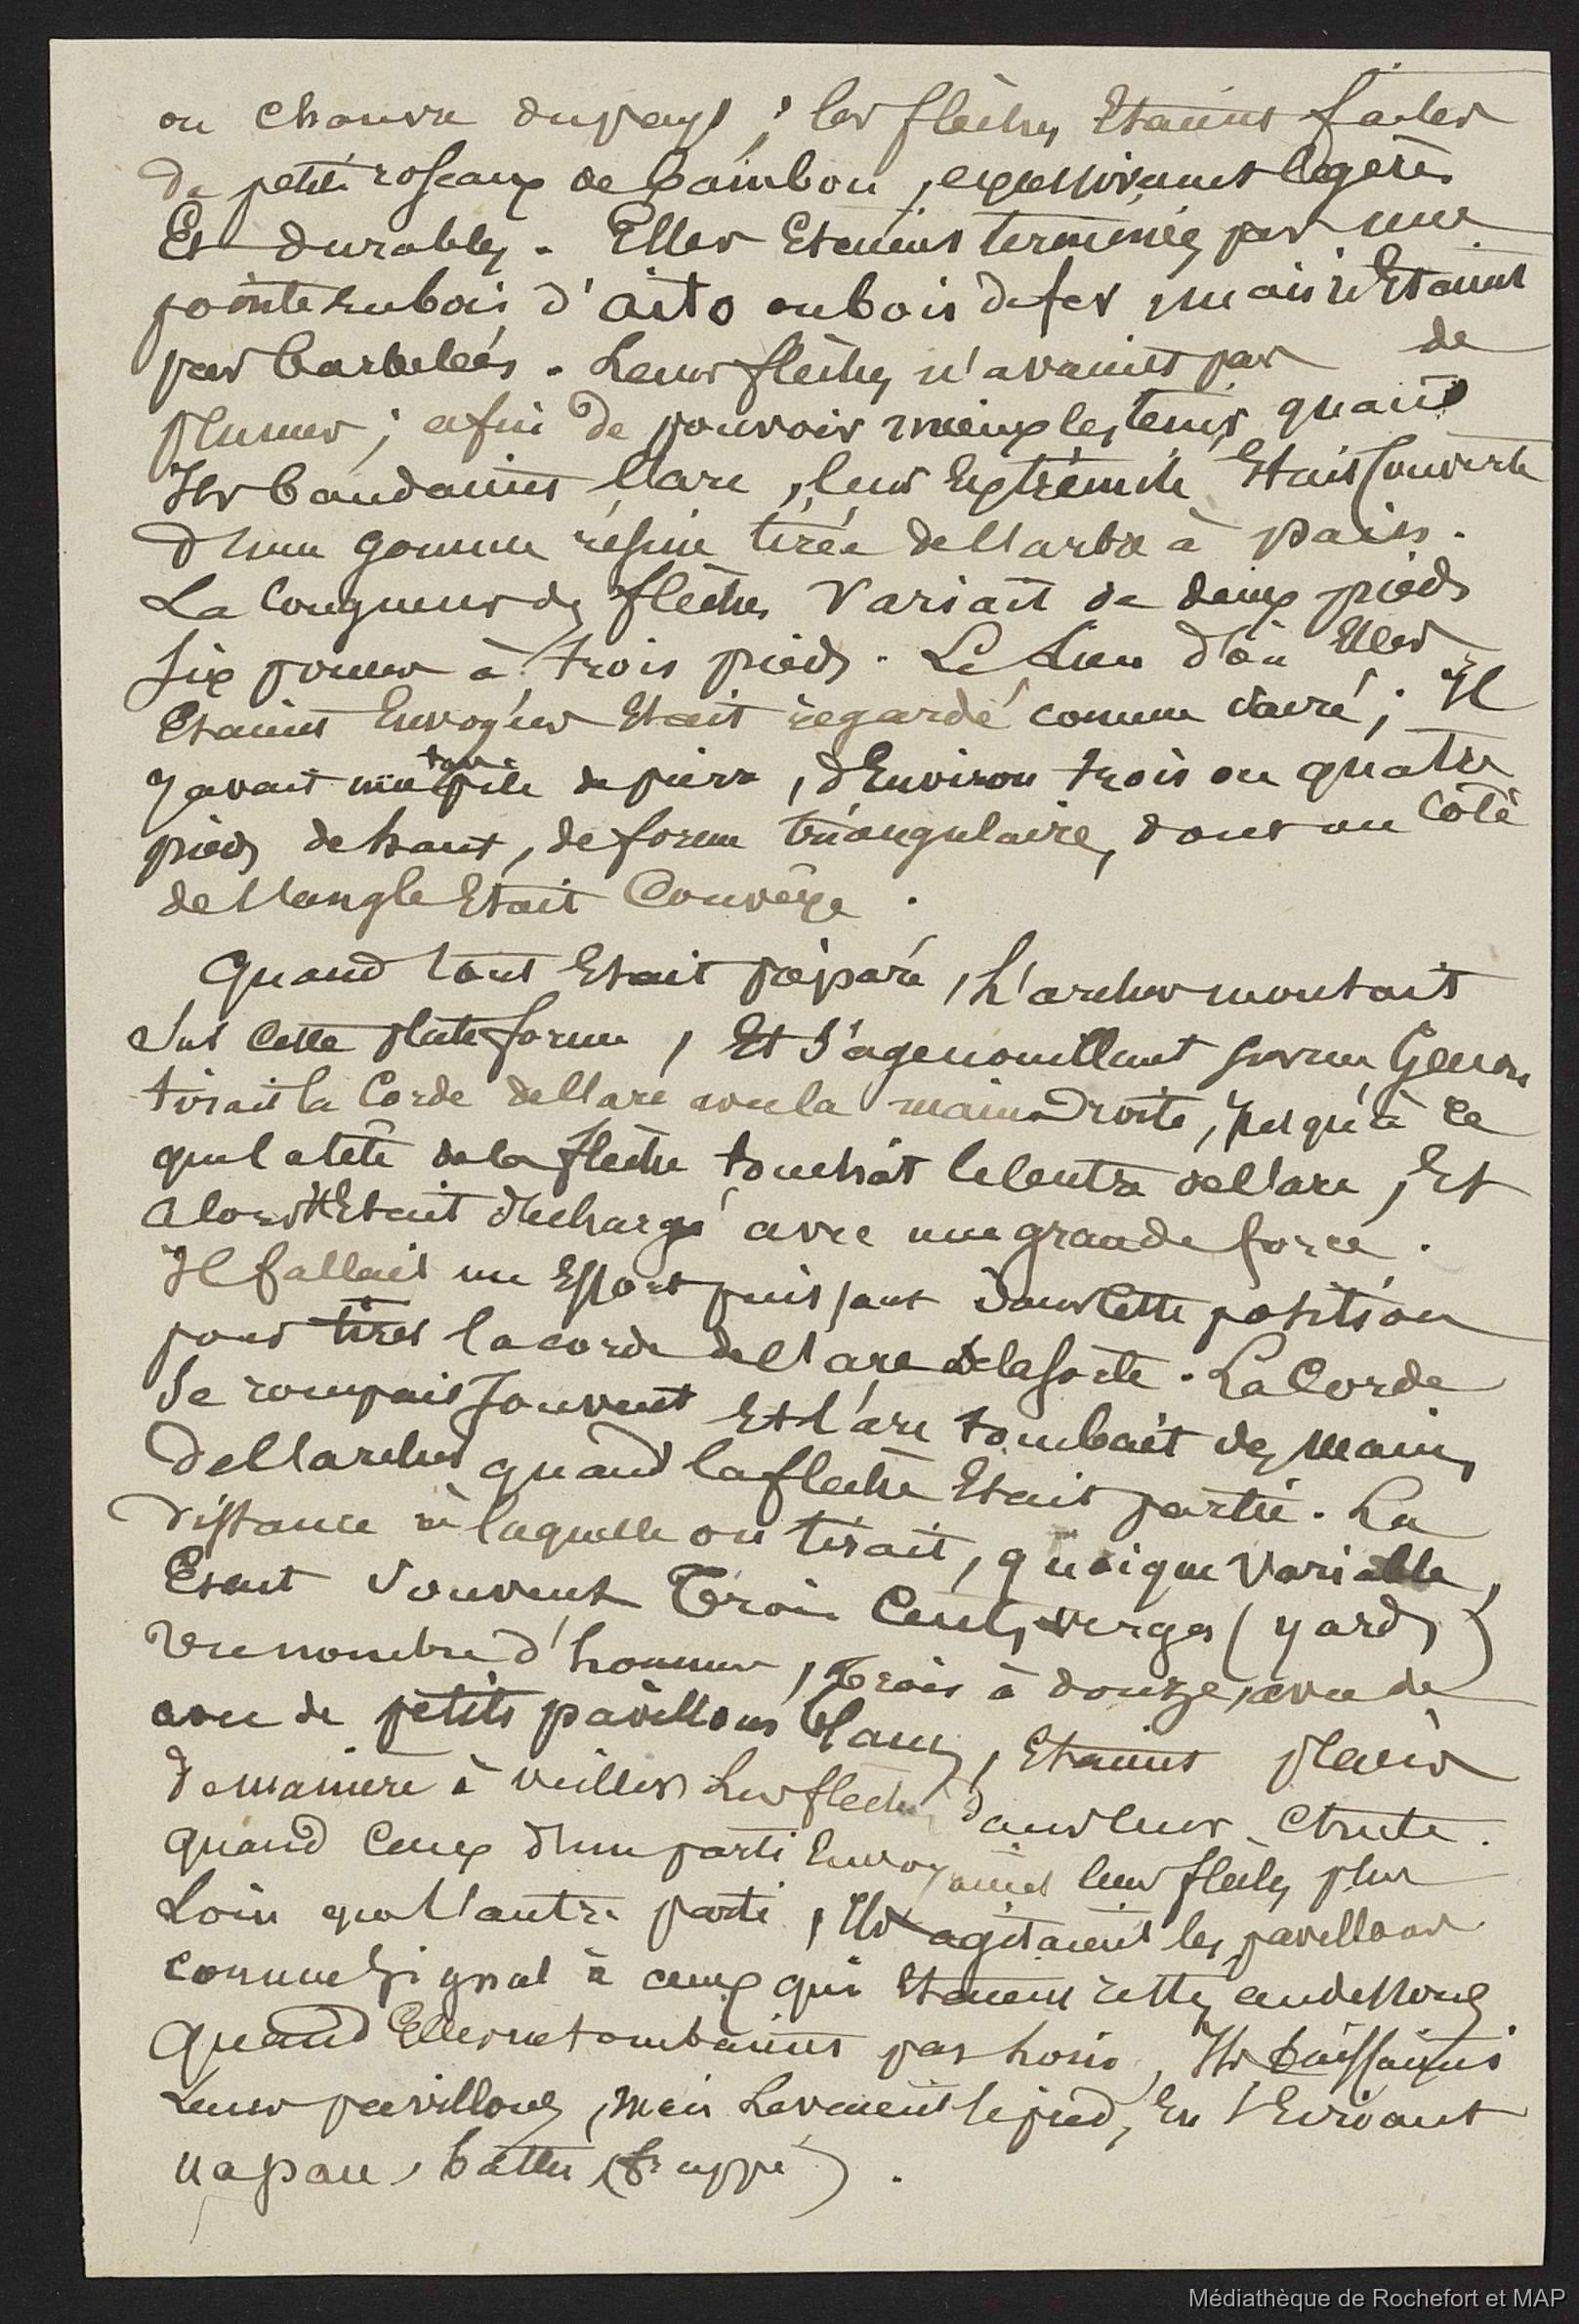 ou chanvre du pays ; les flèches Etaient faites
de petits roseaux de bambou, excessivement légères
Et durables. Elles Etaient terminées par une
pointe en bois d'aito ou bois de fer, mais n'Etaient
pas barbelées. Leurs flèches n'avaient pas de
plumes ; afin de pouvoir mieux les tenir quand
Ils bandaient l'arc, leur Extrémité Etait couverte
d'une gomme résine tirée de l'arbre à pain.
La longueur des flèches variait de deux pieds
six pouces à trois pieds. Le lieu d'où Elles
Etaient Envoyées Etait regardé comme sacré ; Il
y avait une pile de pierre, d'Environ trois ou quatre
pieds de haut, de forme triangulaire, dont un côté
de l'angle Etait Convexe.
Quand tout Etait préparé, L'archer montait
sur cette plateforme, Et s'agenouillant sur un Genou
tirait la Corde de l'arc avec la main Droite, jusqu'à ce
que la tête de la flèche touchât le centre de l'arc, Et
alors Etait déchargé avec une grande force.
Il fallait un Effort puissant dans cette position
pour tirer la corde de l'arc de la sorte. La Corde
se rompait souvent Et l'arc tombait des mains
de l'archer quand la flèche Etait partie. La
distance à laquelle on tirait, quoique variable,
Etait souvent Trois Cents verges (yards)
Un nombre d'hommes, trois à douze, avec de
avec de petits pavillons blancs, Etaient placés
de manière à veiller Les flèches dans leur chute.
quand Ceux d'un parti Envoyaient leurs flèches plus
Loin que l'autre parti, Ils agitaient les pavillons
comme signal à ceux qui Etaient restés au dessous
Quand Elles ne tombaient pas loin, Ils baissaient
Leurs pavillons, mais Levaient le pied, En s'Ecriant
ua pau, battu (frappé).